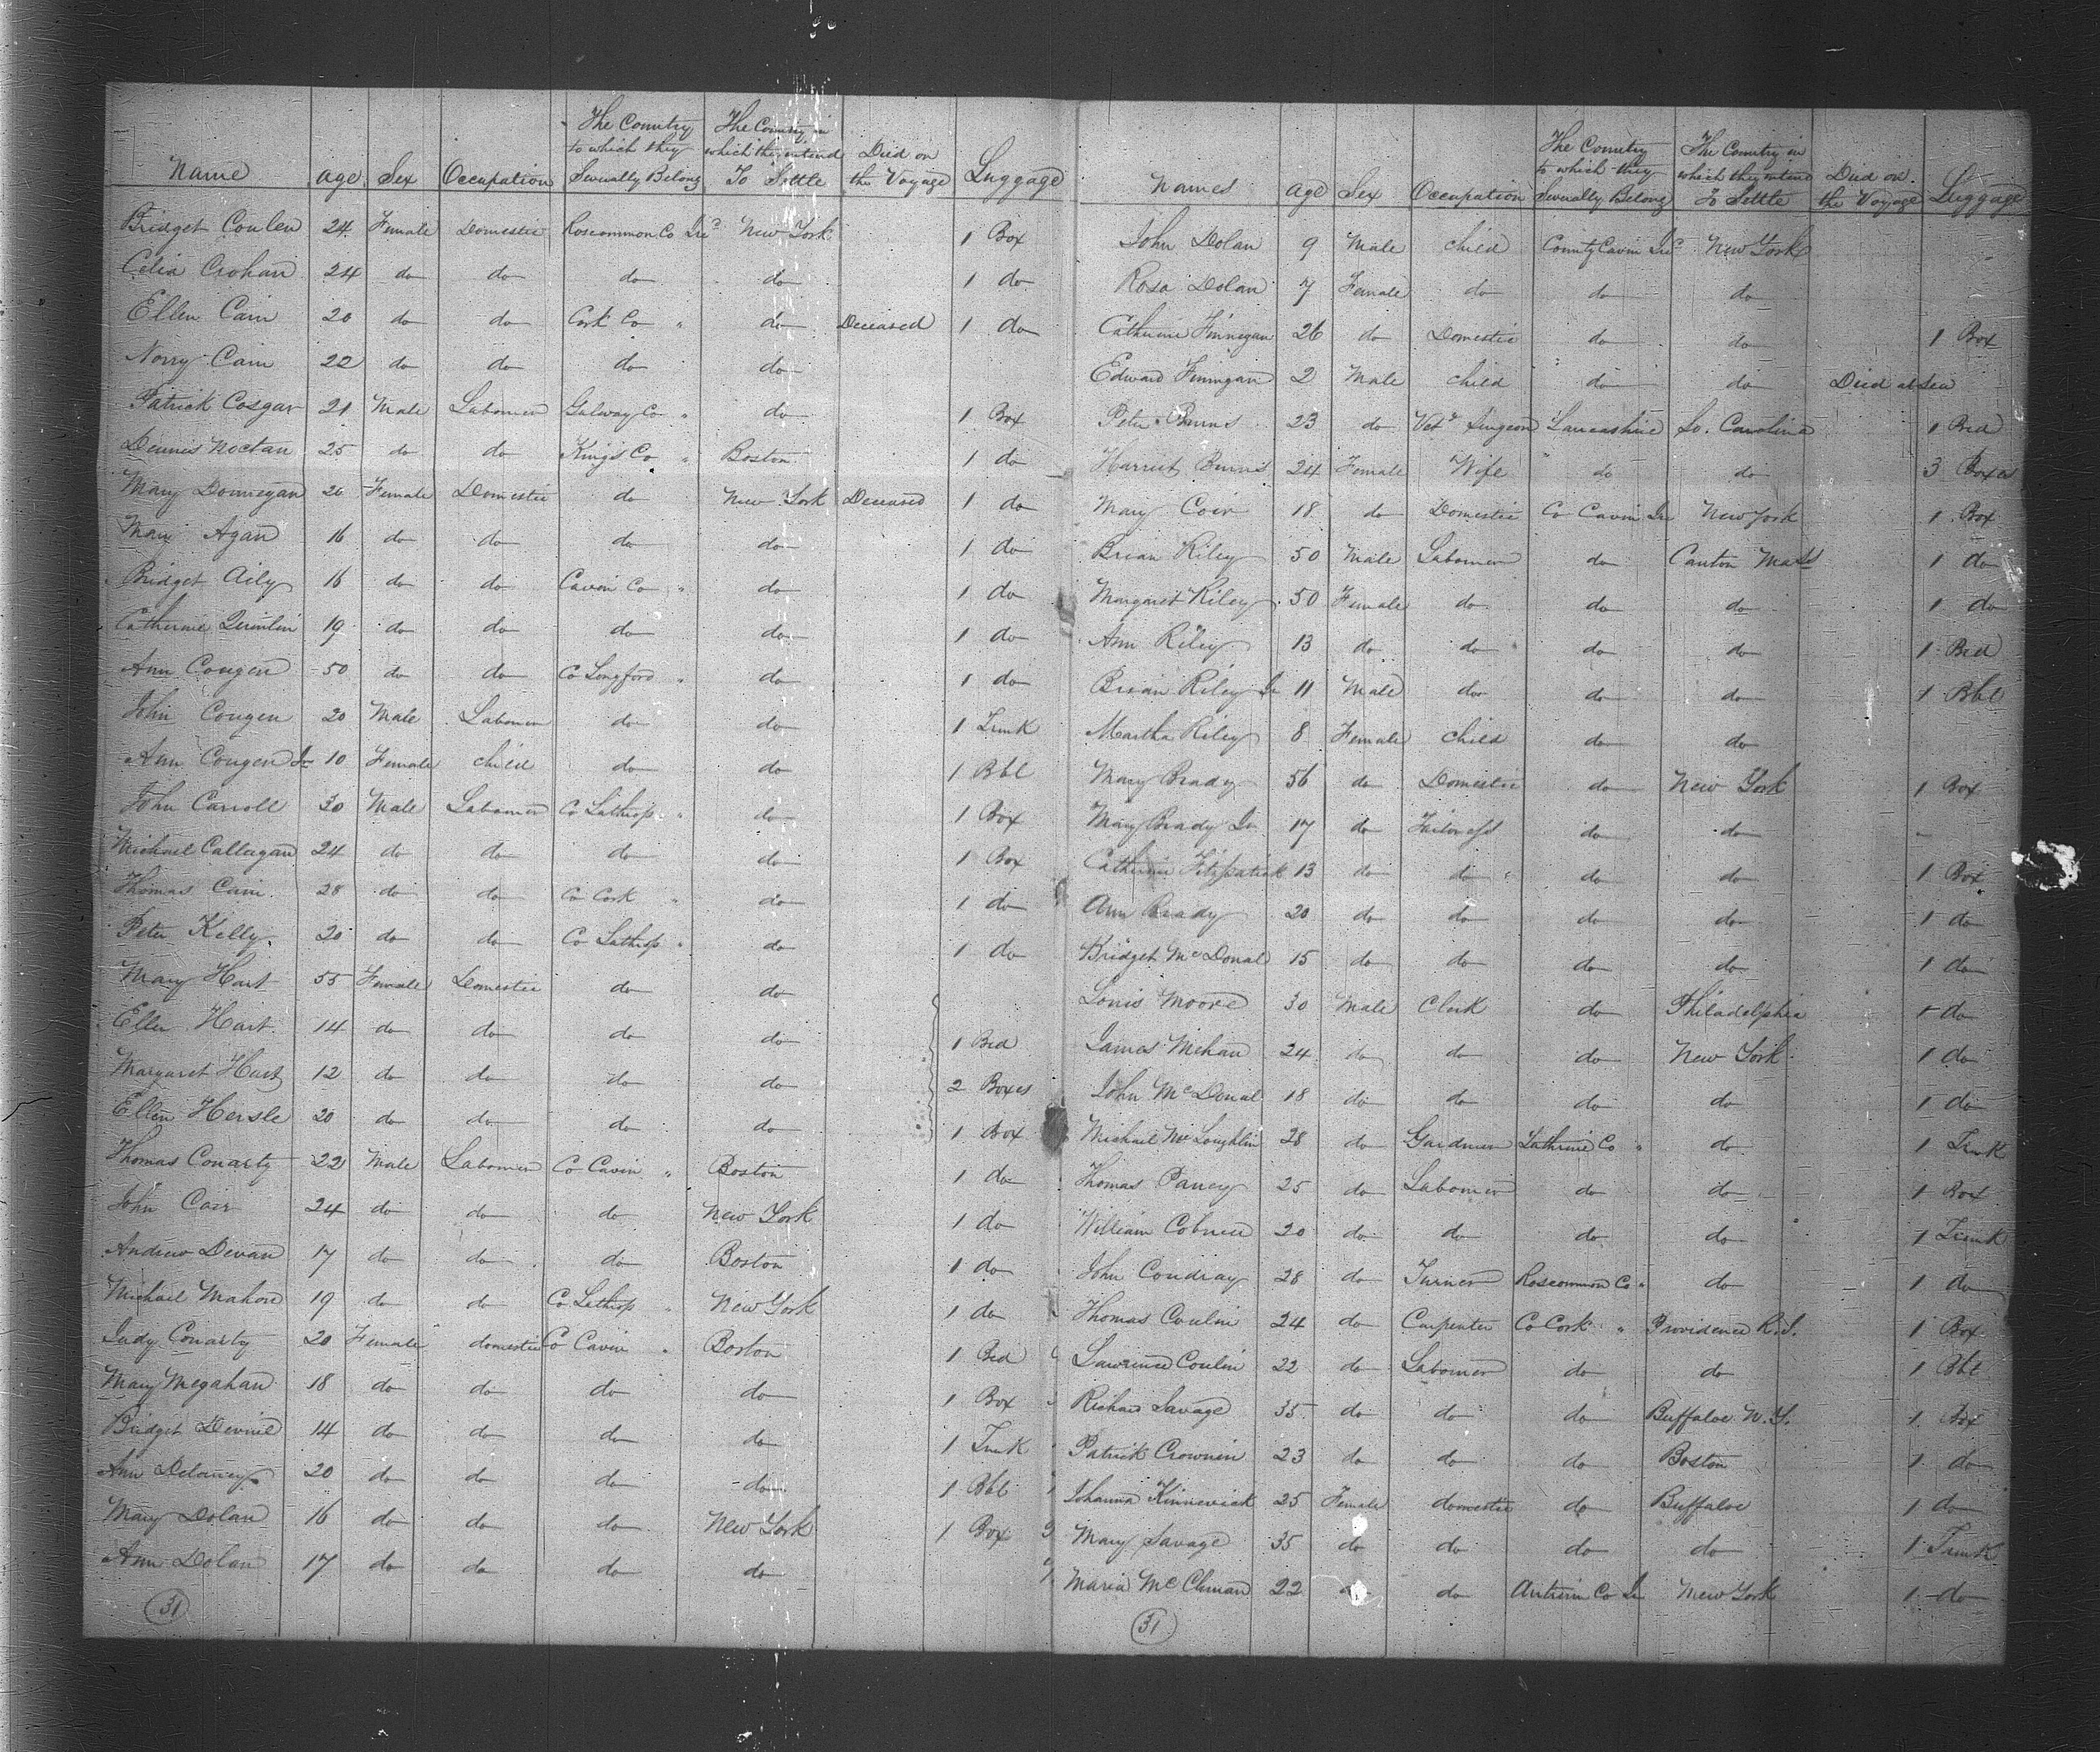 Name age Sex Occupation The Country to which they Severally Belong The Country in which they intend To Settle Died on the Voyage Luggage
Bridget Conlen 24 Female Domestic Roscommon Co Ire New York 1 Box
Celia Crohan 24 do do do do 1 do
Ellen Cain 20 do do Cork Co " do Deceased 1 do
Norry Cain 22 do do do do
Patrick Cosgar 21 Male Labourer Galway Co " do 1 Box
Dennis Noctan 25 do do Kings Co " Boston 1 do
Mary Donnegan 26 Female Domestic do New York Deceased 1 do
Mary Agan 16 do do do do 1 do
Bridget Aily 16 do do Cavin Co " do 1 do
Catherine Quinlin 19 do do do do 1 do
Ann Congen 50 do do Co Longford " do 1 do
John Congen 20 Male Labourer do do 1 Trunk
Ann Congen Jr 10 Female child do do 1 Bbl
John Carroll 30 Male Labourer Co Lathrop " do 1 Box
Michael Callagan 24 do do do do 1 Box
Thomas Cain 28 do do Co Cork " do 1 do
Peter Kelly 20 do do Co Lathrop " do 1 do
Mary Hart 55 Female Domestic do do
Ellen Hart 14 do do do do 1 Bed
Margaret Hart 12 do do do do 2 Boxes
Ellen Hersle 20 do do do do 1 Box
Thomas Conarty 22 Male Labourer Co Cavin " Boston 1 do
John Carr 24 do do do New York 1 do
Andrew Devan 17 do do do Boston 1 do
Michael Mahon 19 do do Co Lathrop " New York 1 do
Judy Conarty 20 Female domestic Co Cavin " Boston 1 Bed
Mary Megahan 18 do do do do 1 Box
Bridget Devine 14 do do do do 1 Trunk
Ann Delaney 20 do do do do 1 Bbl
Mary Dolan 16 do do do New York 1 Box
Ann Dolan 17 do do do do
31
Names age Sex Occupation The Country to which they Severally Belong The Country in which they intend To Settle Died on the Voyage Luggage
John Dolan 9 Male child County Cavin Ire New York
Rosa Dolan 7 Female do do do
Catherine Finnegan 26 do Domestic do do 1 Box
Edward Finnigan 2 Male child do do Died at Sea
Peter Burns 23 do Vety Surgeon Lancashire So. Carolina 1 Bed
Harriet Burns 24 Female Wife " do do 3 Boxes
Mary Coir 18 do Domestic Co Cavin Ire New York 1 Box
Brian Riley 50 Male Labourer do Canton Mass 1 do
Margaret Riley 50 Female do do do 1 do
Ann Riley 13 do do do do 1 Bed
Brian Riley Jr 11 Male do do do 1 Bbl
Martha Riley 8 Female child do do
Mary Brady 56 do Domestic do New York 1 Box
Mary Brady Jr 17 do Tailoress do do
Catherine Fitzpatrick 13 do do do do 1 Box
Ann Brady 20 do do do do 1 do
Bridget McDonal 15 do do do do 1 do
Louis Moore 30 Male Clerk do Philadelphia 1 do
James Mehan 24 do do do New York 1 do
John McDonal 18 do do do do 1 do
Michael McLoughlin 28 do Gardner Lathrine Co " do 1 Trunk
Thomas Pancy 25 do Labourer do do 1 Box
William Cobrien 20 do do do do 1 Trunk
John Condray 28 do Turner Roscommon Co " do 1 do
Thomas Coulin 24 do Carpenter Co Cork " Providence R.I. 1 Box
Lawrence Coulin 22 do Labourer do do 1 Bbl
Richard Savage 35 do do do Buffaloe N.Y. 1 Box
Patrick Crownin 23 do do do Boston 1 do
Johanna Kinnevick 25 Female domestic do Buffaloe 1 do
Mary Savage 35 do do do do 1 Trunk
Maria McClunan 22 do do Antrim Co Ir New York 1 do
31